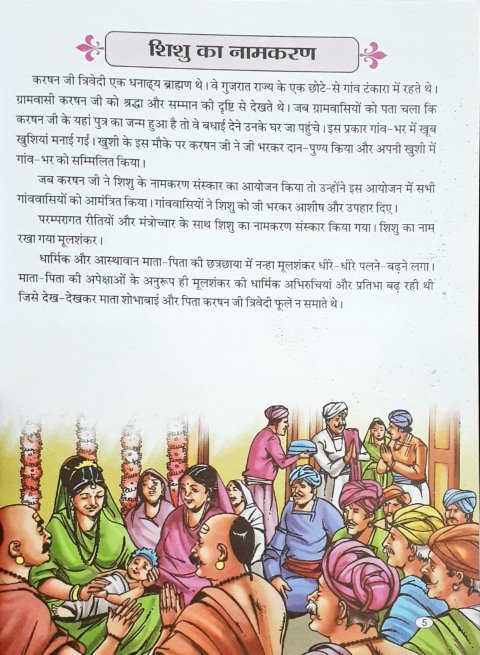 शिशु का नामकरण
करषन जी त्रिवेदी एक धनाढ्य ब्राह्मण थे। वे गुजरात राज्य के एक छोटे-से गांव टंकारा में रहते थे।
ग्रामवासी करषन जी को श्रद्धा और सम्मान की दृष्टि से देखते थे। जब ग्रामवासियों को पता चला कि
करषन जी के यहां पुत्र का जन्म हुआ है तो वे बधाई देने उनके घर जा पहुंचे। इस प्रकार गांव-भर में खूब
खुशियां मनाई गईं। खुशी के इस मौके पर करषन जी ने जी भरकर दान-पुण्य किया और अपनी खुशी में
गांव-भर को सम्मिलित किया।
जब करषन जी ने शिशु के नामकरण संस्कार का आयोजन किया तो उन्होंने इस आयोजन में सभी
गांववासियों को आमंत्रित किया। गांववासियों ने शिशु को जी भरकर आशीष और उपहार दिए।
परम्परागत रीतियों और मंत्रोच्चार के साथ शिशु का नामकरण संस्कार किया गया। शिशु का नाम
रखा गया मूलशंकर।
धार्मिक और आस्थावान माता-पिता की छत्रछाया में नन्हा मूलशंकर धीरे-धीरे पलने-बढ़ने लगा।
माता-पिता की अपेक्षाओं के अनुरूप ही मूलशंकर की धार्मिक अभिरुचियां और प्रतिभा बढ़ रही थी
जिसे देख-देखकर माता शोभाबाई और पिता करषन जी त्रिवेदी फूले न समाते थे।
5